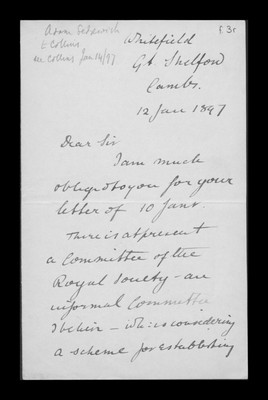 f 3r
Adam Sedgwick
to Collins
see Collins Jan 14/97
Whitefield
Gt. Shelford
Cambs.
12 Jan 1897
Dear Sir
I am much
obliged to you for your
letter of 10 Jant.
There is at present
a Committee of the
Royal Society - an
informal Committee
I believe - wh: is considering
a scheme for establishing